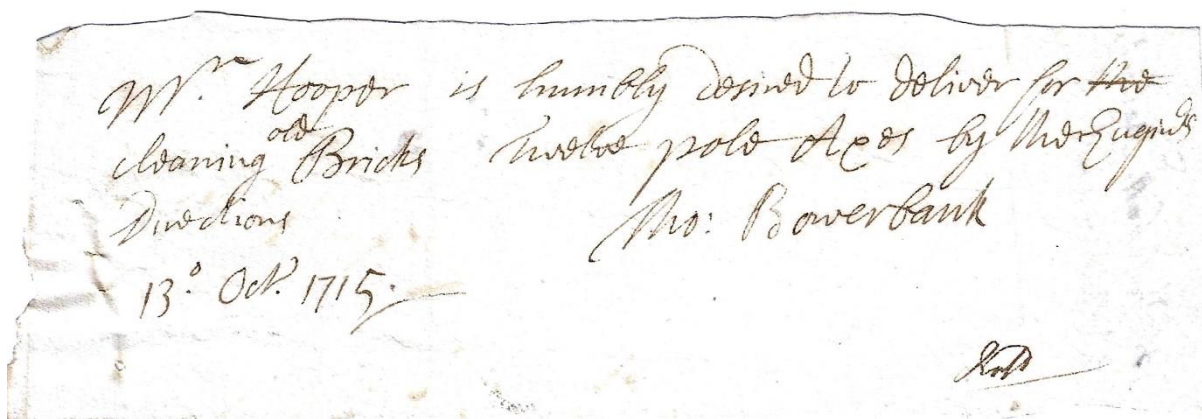 Mr. Hooper is humbly desired to deliver for the
cleaning old Bricks Twelve pole Axes by
Directions
Tho: Bowerbank
13.º Oct.r 1715.